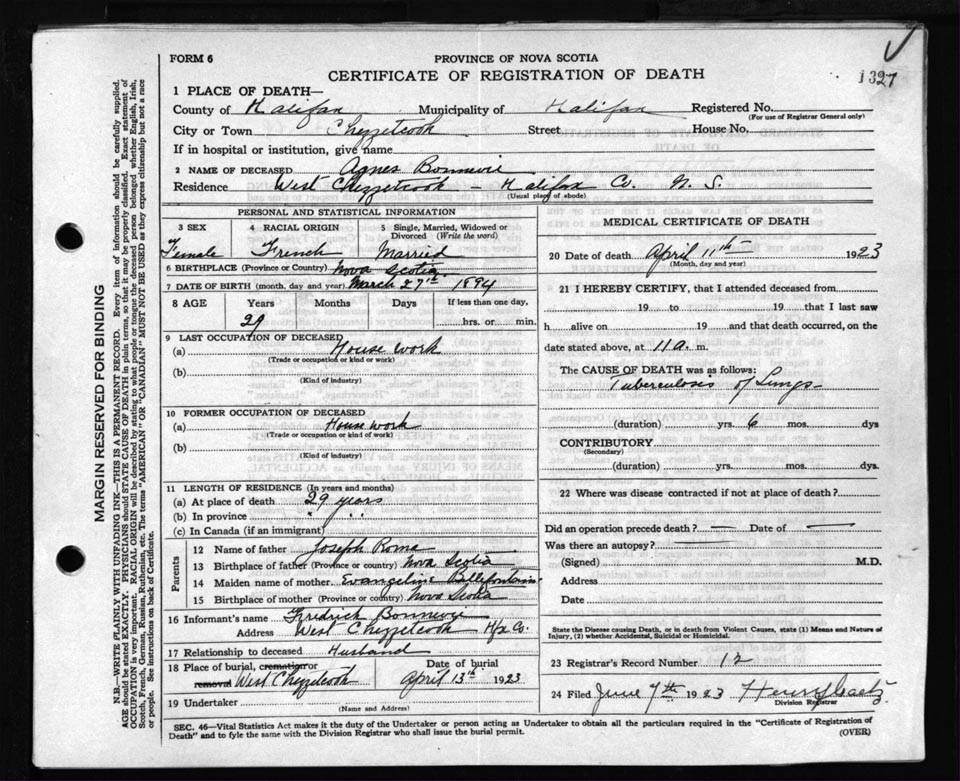 FORM 6
PROVINCE OF NOVA SCOTIA
CERTIFICATE OF REGISTRATION OF DEATH
1327
1 PLACE OF DEATH—
County of Halifax Municipality of Halifax Registered No.
(For use of Registrar General only)
City or Town Chezzetcook Street House No.
If in hospital or institution, give name
2 NAME OF DECEASED Agnes Bonnevie
Residence West Chezzetcook - Halifax Co. N. S.
(Usual place of abode)
PERSONAL AND STATISTICAL INFORMATION
3 SEX 4 RACIAL ORIGIN 5 Single, Married, Widowed or Divorced (Write the word)
Female French Married
6 BIRTHPLACE (Province or Country) Nova Scotia
7 DATE OF BIRTH (month, day, and year) March 27th 1894
8 AGE Years Months Days If less than one day,
29 hrs. or min.
9 LAST OCCUPATION OF DECEASED
(a) House work
(Trade or occupation or kind or work)
(b)
(Kind of industry)
10 FORMER OCCUPATION OF DECEASED
(a) House work
(Trade or occupation or kind of work)
(b)
(Kind of industry)
11 LENGTH OF RESIDENCE (In years and months)
(a) At place of death 29 years
(b) In province " "
(c) In Canada (if an immigrant)
Parents
12 Name of father Joseph Roma
13 Birthplace of father (Province or country) Nova Scotia
14 Maiden name of mother Evangeline Bellefontaine
15 Birthplace of mother (Province or country) Nova Scotia
16 Informant's name Fredrick Bonnevie
Address West Chezzetcook Hfx Co.
17 Relationship to deceased Husband
18 Place of burial, cremation or removal West Chezzetcook
Date of burial April 13th 1923
19 Undertaker
(Name and Address)
MEDICAL CERTIFICATE OF DEATH
20 Date of death April 11th 1923
(Month, day and year)
21 I HEREBY CERTIFY, that I attended deceased from
19 to 19 that I last saw
h alive on 19 and that death occurred, on the
date stated above, at 11 a. m.
The CAUSE OF DEATH was as follows:
Tuberculosis of Lungs-
(duration) yrs. 6 mos. dys
CONTRIBUTORY
(Secondary)
(duration) yrs. mos. dys.
22 Where was disease contracted if not at place of death?
Did an operation precede death? — Date of —
Was there an autopsy? —
(Signed) M.D.
Address
Date
State the Disease causing Death, or in death from Violent Causes, state (1) Means and Nature of
Injury, (2) whether Accidental, Suicidal or Homicidal.
23 Registrar's Record Number 12
24 Filed June 7th 1923
Division Registrar
SEC. 46—Vital Statistics Act makes it the duty of the Undertaker or person acting as Undertaker to obtain all the particulars required in the "Certificate of Registration of
Death" and to fyle the same with the Division Registrar who shall issue the burial permit.
(OVER)
MARGIN RESERVED FOR BINDING
N.B.—WRITE PLAINLY WITH UNFADING INK—THIS IS A PERMANENT RECORD. Every item of information should be carefully supplied.
AGE should be stated EXACTLY. PHYSICIANS should STATE CAUSE OF DEATH in plain terms, so that it may be properly classified. Exact statement of
OCCUPATION is very important. RACIAL ORIGIN will be described by stating to what people or tongue the deceased person belonged whether English, Irish,
Scotch, French, German, Russian, Ruthenian, etc. The terms "AMERICAN" or "CANADIAN" MUST NOT BE USED as they express citizenship but not a race
or people. See instructions on back of Certificate.